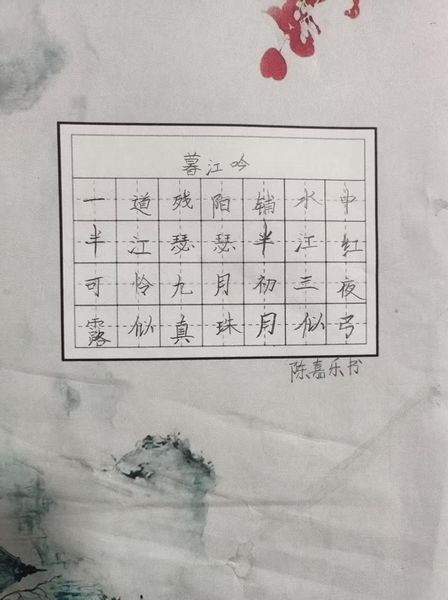 暮江吟
一道残阳铺水中
半江瑟瑟半江红
可怜九月初三夜
露似真珠月似弓
陈嘉乐书